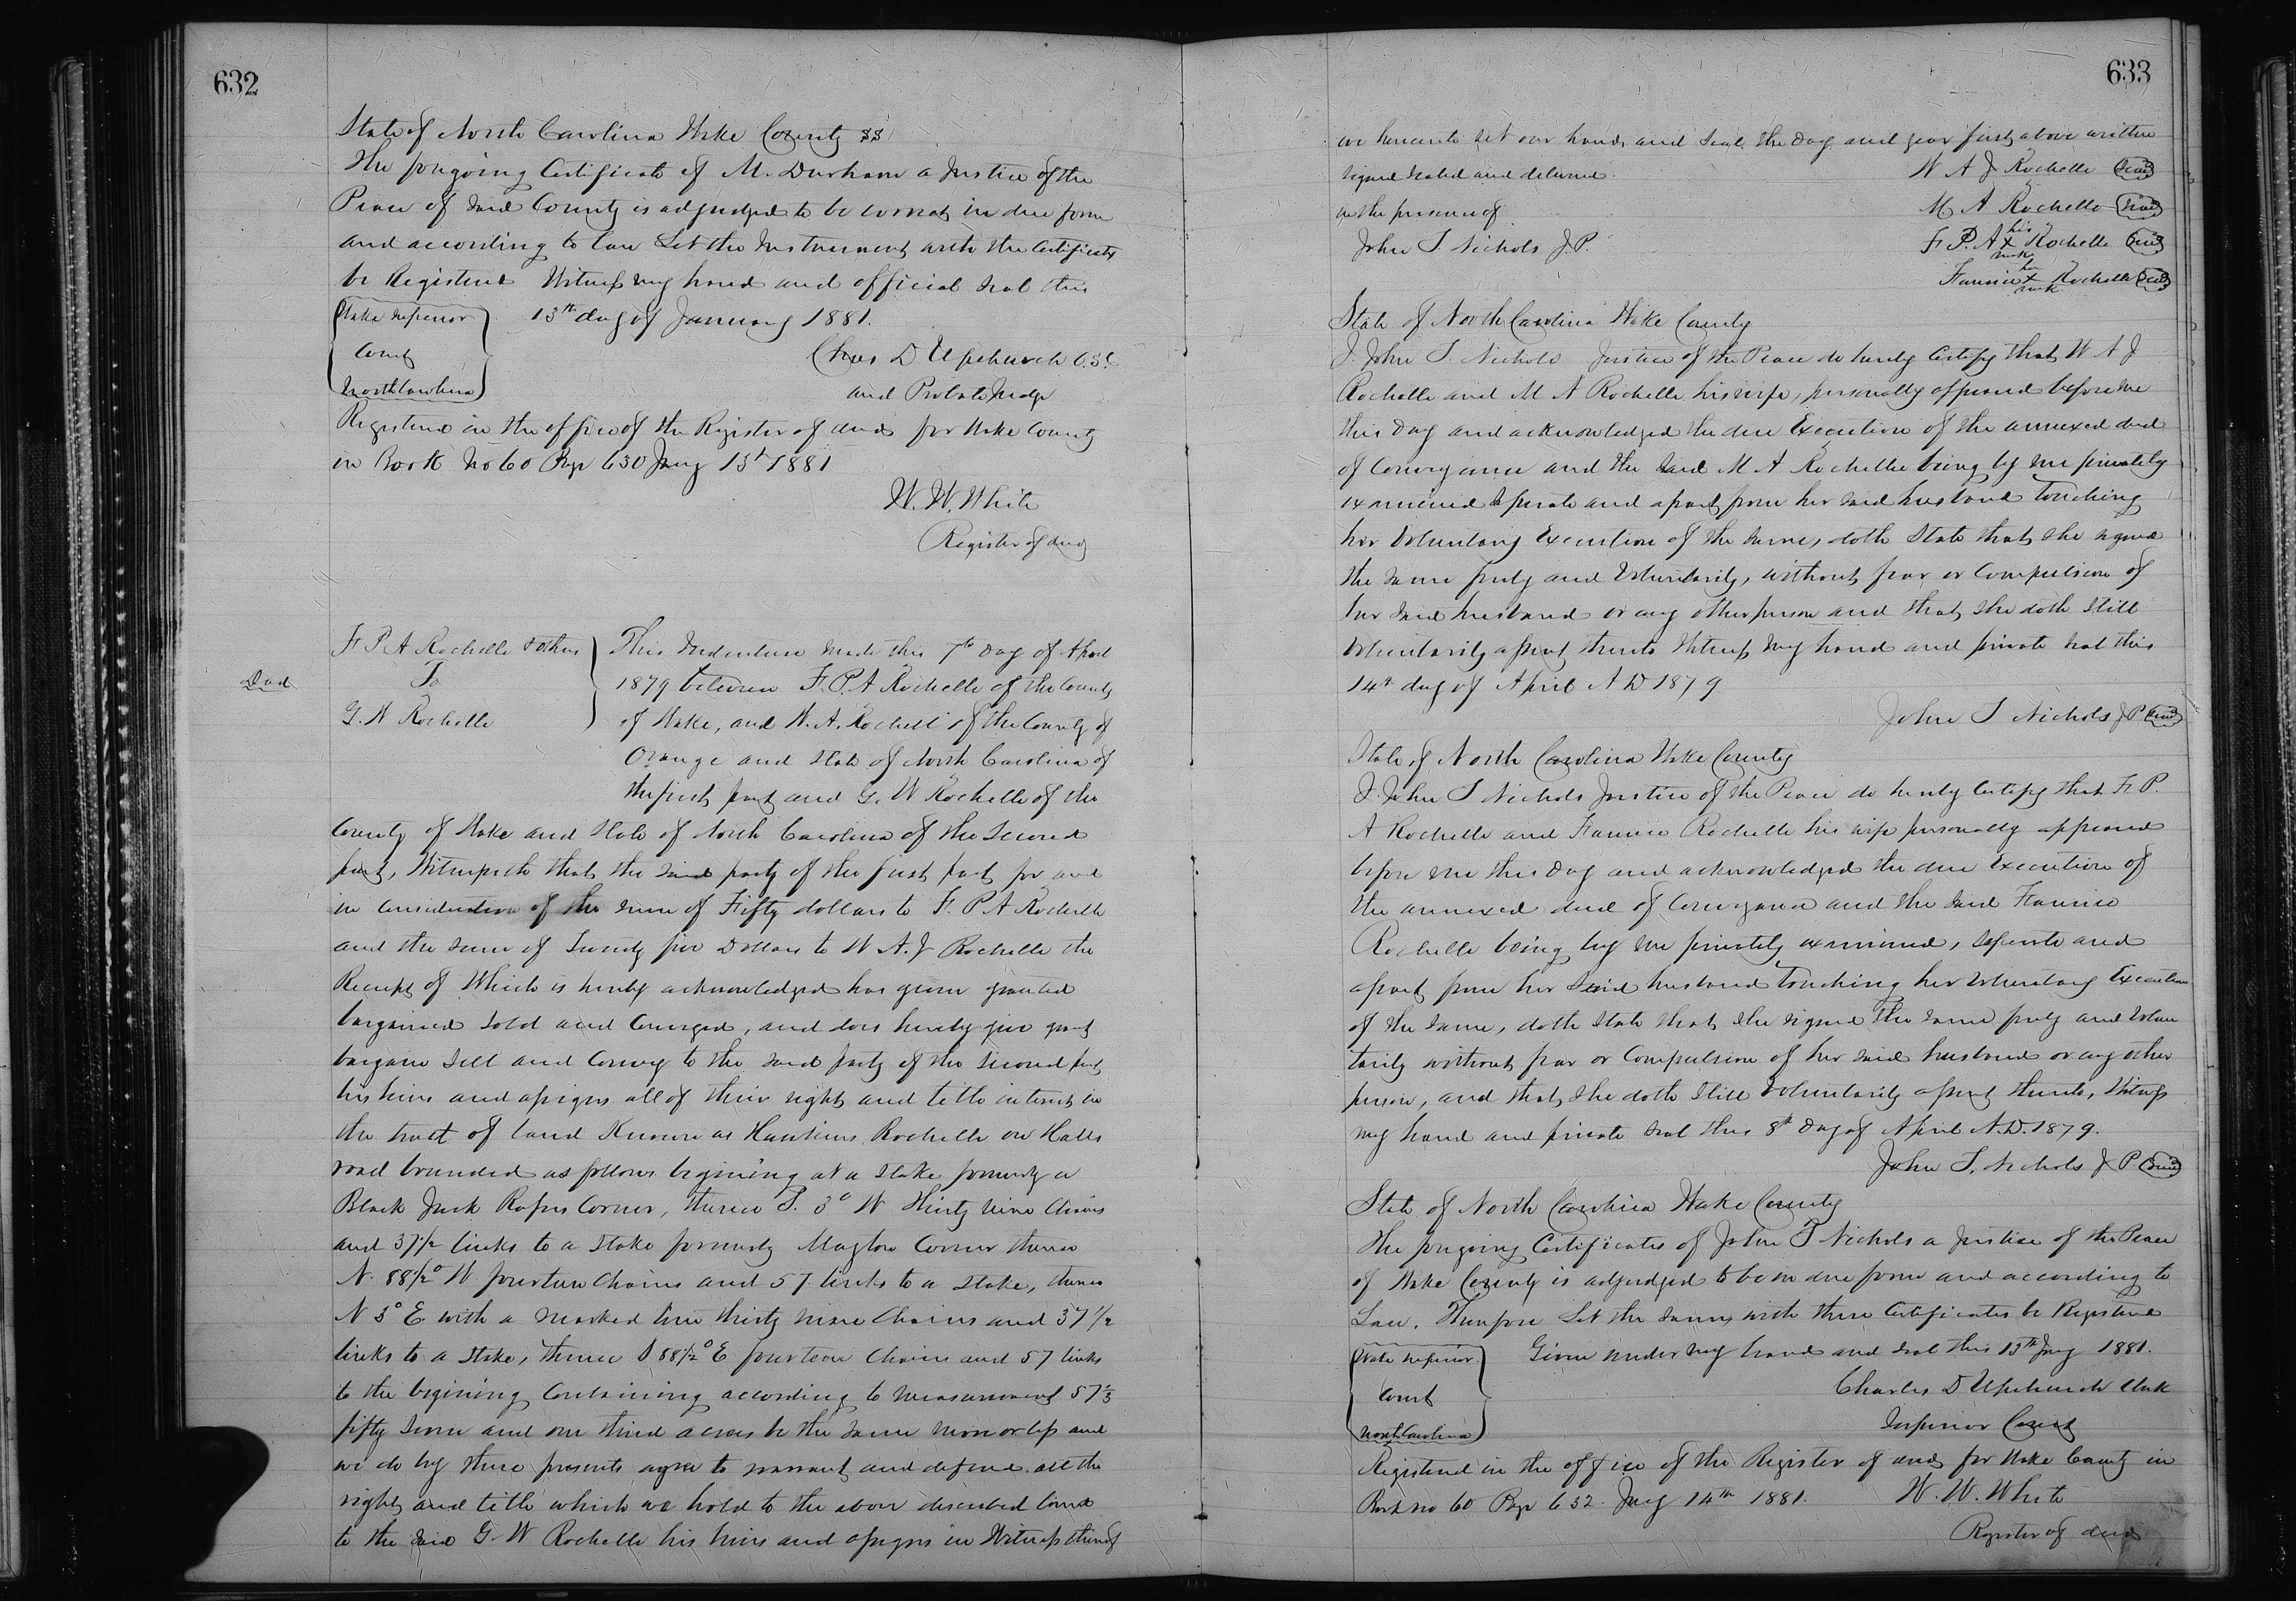 632
State of North Carolina Wake County ss
The foregoing Certificate of M. Durham a Justice of the
Peace of said County is adjudged to be correct in due form
and according to law Let the Instrument with the Certificates
be Registered Witness my hand and official seal this
Wake Superior
Court
North Carolina
13th day of January 1881.
Chas D Upchurch C.S.C
and Probate Judge
Registered in the office of the Register of deeds for Wake County
in Book No 60 Page 630 Jany 13th 1881
W. W. White
Register of deeds
Deed
F P A Rochelle & others
To
G. W Rochelle
This Indenture made this 7th day of April
1879 between F. P. A Rochelle of the County
of Wake, and W. A. Rochell of the County of
Orange and State of North Carolina of
the first part and G. W Rochelle of the
County of Wake and State of North Carolina of the Second
part, Witnesseth that the said party of the first part for and
in consideration of the sum of Fifty dollars to F. P A Rochelle
and the sum of Twenty five Dollars to W A. J Rochelle the
Receipt of Which is hereby acknowledged has given granted
bargained Sold and Conveyed, and does hereby give grant
bargain Sell and Convey to the said party of the second part
his heirs and assigns all of their right and title interest in
the tract of land Known as Hawkins Rochelle on Halls
road bounded as follows begining at a stake formerly a
Black Jack Rofers Corner, thence S. 3° W Thirty nine Chains
and 37 1/2 links to a stake formerly Corner thence
N. 88 1/2° W fourteen Chains and 57 links to a stake, thence
N 3° E with a marked line thirty nine Chains and 37 1/2
links to a stake, thence S 88 1/2° E fourteen Chains and 57 links
to the begining Containing according to measurement 57 1/3
fifty seven and one third acres be the same more or less and
we do by these presents agree to warrant and defend all the
right and title which we hold to the above described land
to the said G. W Rochelle his heirs and assigns in Witness thereof
633
we hereunto set our hands and seal the day and year first above written
signed sealed and delivered
in the presence of
John T. Nichols J.P.
W A J Rochelle Seal
M A Rochelle Seal
F. P. A his x mark Rochelle Seal
Fannie her x mark Rochelle Seal
State of North Carolina Wake County
I. John T. Nichols Justice of the Peace do hereby Certify that W A J
Rochelle and M A Rochelle his wife, personally appeared before me
this day and acknowledged the due Execution of the annexed deed
of Conveyance and the said M A Rochelle being by me privately
examined Seperate and apart from her said husband Touching
her Voluntary Execution of the same, doth State that she signed
the same freely and Voluntarily, without fear or Compulsion of
her said husband or any other person and that she doth still
Voluntarily assent thereto Witness my hand and private seal this
14th day of April A D 1879
John T Nichols J P Seal
State of North Carolina Wake County
I. John T Nichols Justice of the Peace do hereby Certify that F. P.
A Rochelle and Fannie Rochelle his wife personally appeared
before me this day and acknowledged the due Execution of
the annexed deed of Conveyance and the said Fannie
Rochelle being by me privately examined, seperate and
apart from her Said husband touching her Voluntary Execution
of the same, doth State that she signed the same freely and Volun
tarily without fear or Compulsion of her said husband or any other
person, and that she doth still Voluntarily assent thereto, Witness
my hand and private seal this 8th day of April A.D. 1879.
John T. Nichols J P. Seal
State of North Carolina Wake County
The foregoing Certificates of John T Nichols a Justice of the Peace
of Wake County is adjudged to be in due form and according to
Law. Therefore Let the same, with these Certificates be Registered
Wake Superior
Court
North Carolina
Given under my hand and seal this 13th Jany 1881.
Charles D Upchurch Clerk
Superior Court
Registered in the office of the Register of deeds for Wake County in
Book No 60 Page 632. Jany 14th 1881.
W. W. White
Register of deeds